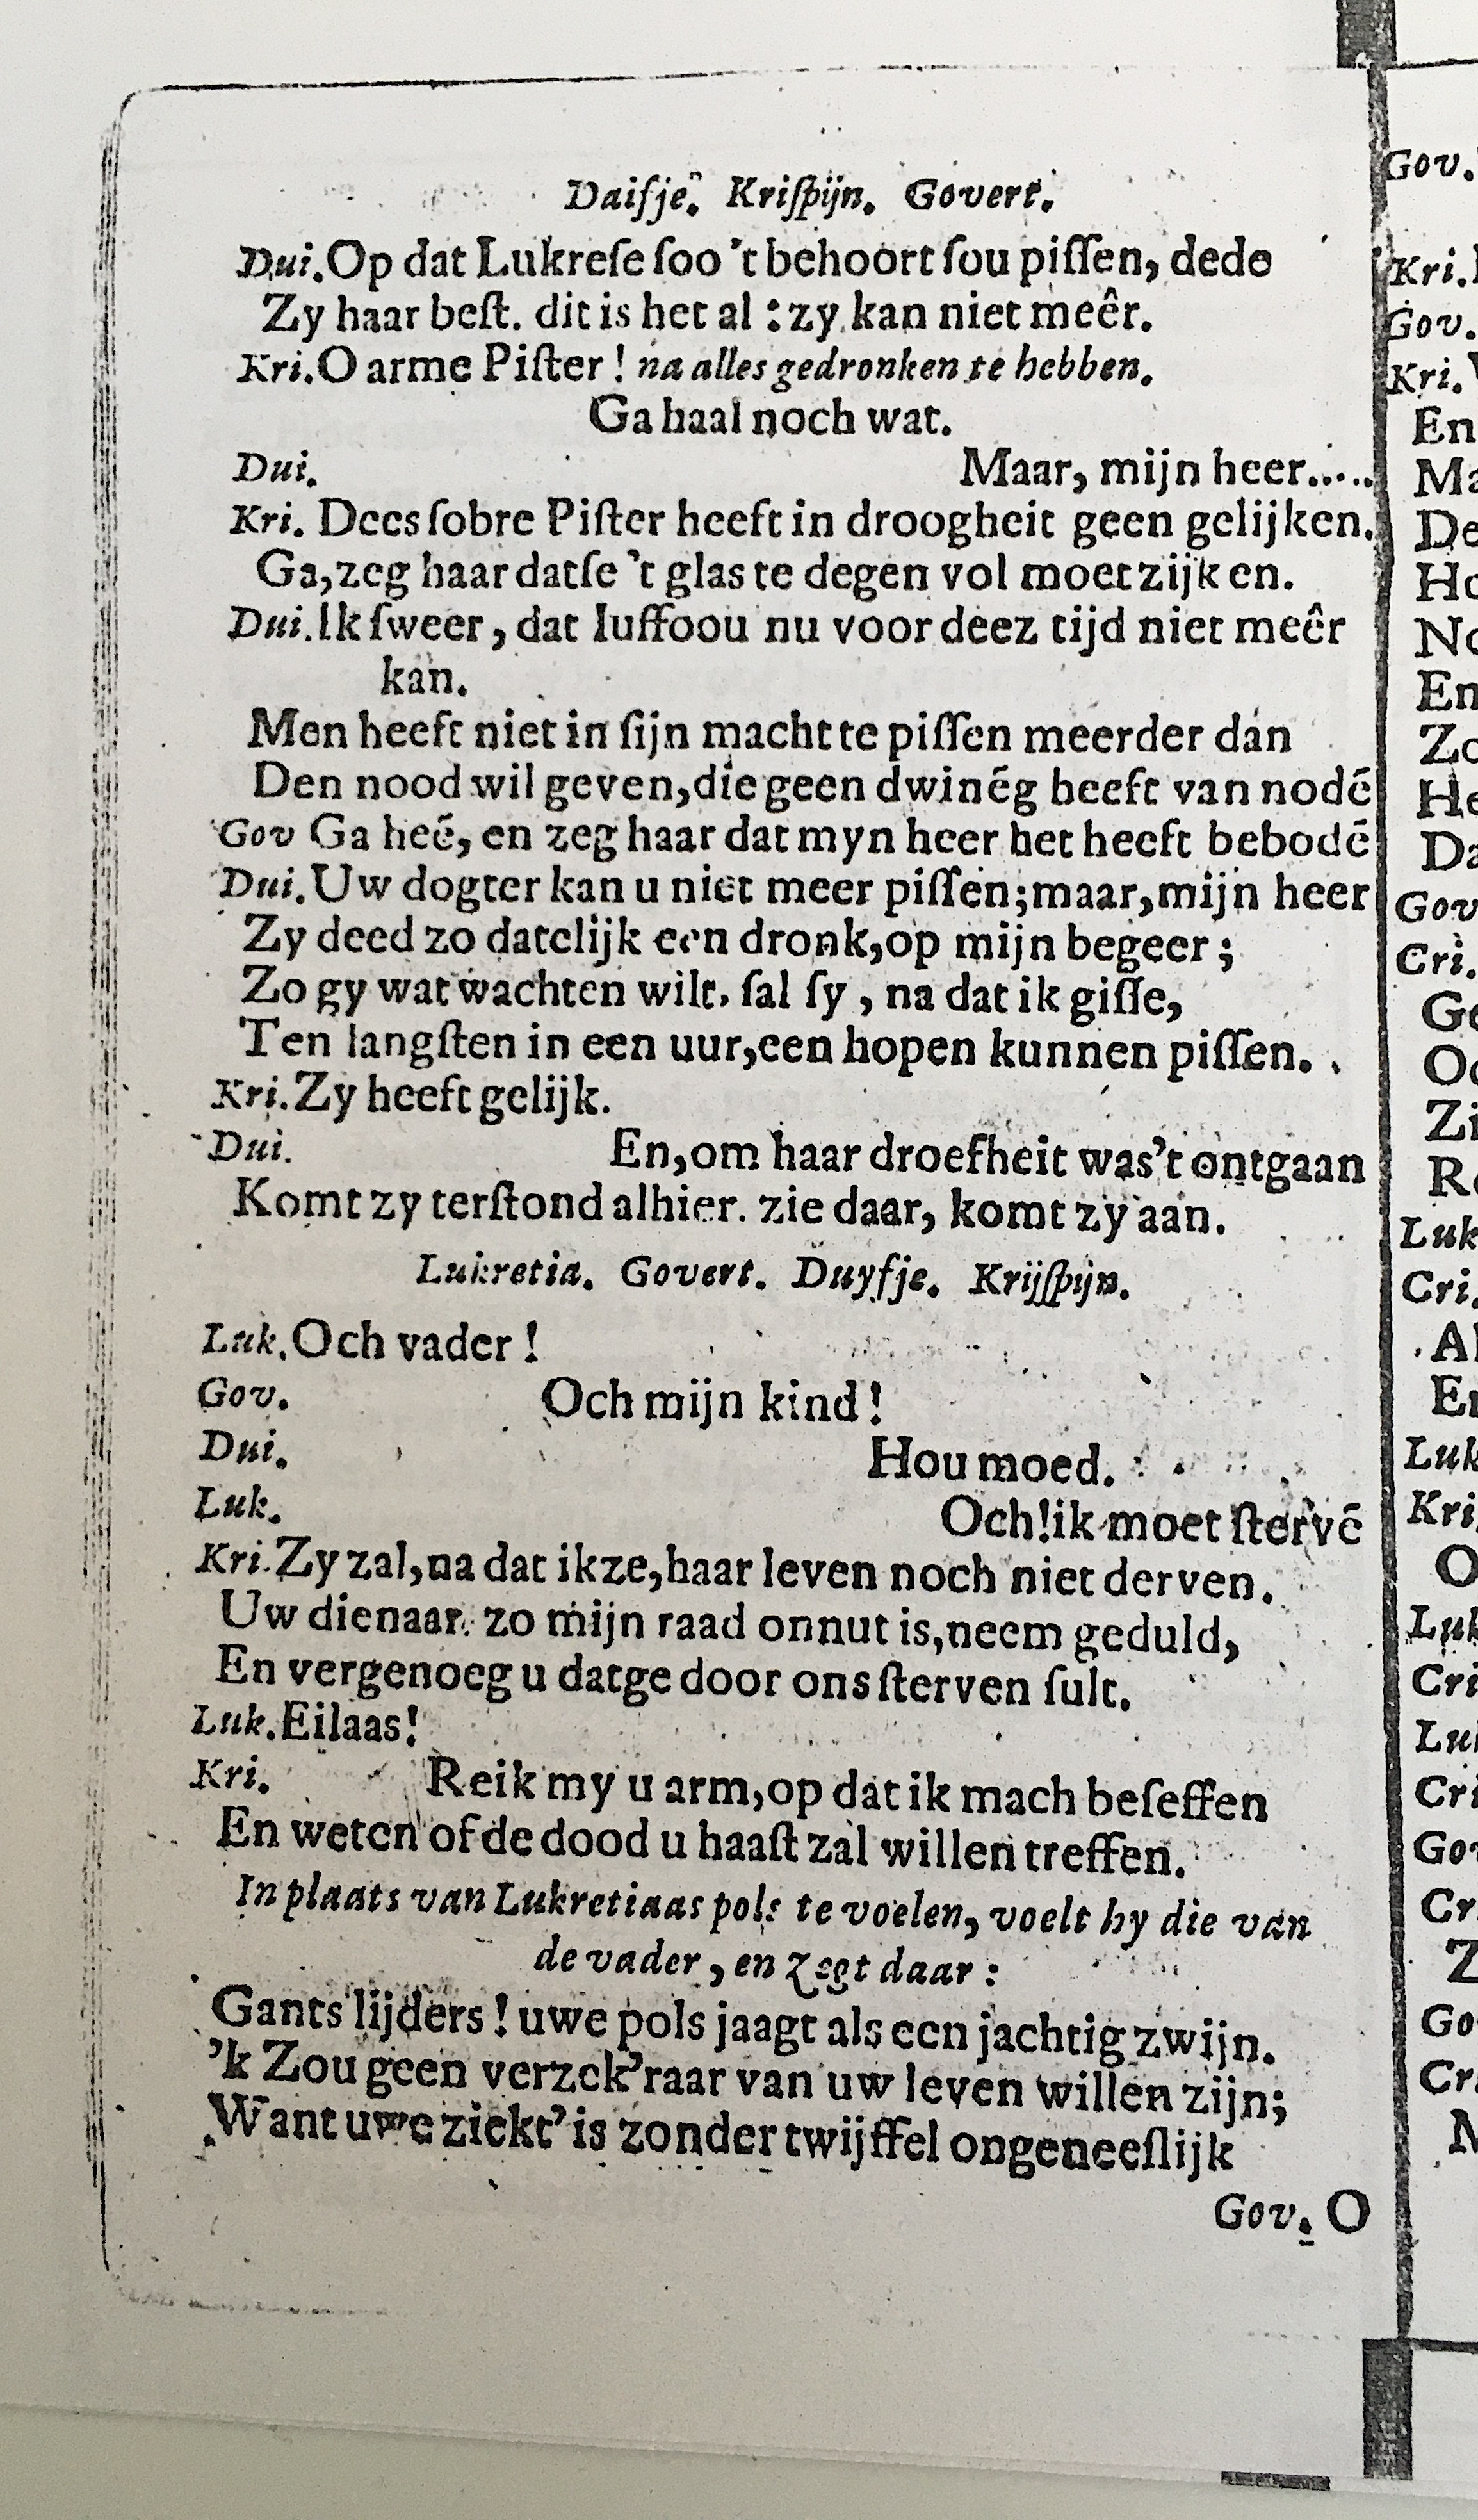 Daifje. Kriſpijn. Govert.
Dui. Op dat Lukreſe ſoo 't behoort ſou piſſen, dede
Zy haar beſt. dit is het al : zy kan niet meêr.
Kri. O arme Piſter ! na alles gedronken te hebben.
Ga haal noch wat.
Dui. Maar, mijn heer.....
Kri. Dees ſobre Piſter heeft in droogheit geen gelijken.
Ga, zeg haar datſe 't glas te degen vol moet zijken.
Dui. Ik ſweer, dat Iuffoou nu voor deez tijd niet meêr
kan.
Men heeft niet in ſijn macht te piſſen meerder dan
Den nood wil geven, die geen dwinēg heeft van nodē
Gov Ga heē, en zeg haar dat myn heer het heeft bebodē
Dui. Uw dogter kan u niet meer piſſen; maar, mijn heer
Zy deed zo datelijk een dronk, op mijn begeer ;
Zo gy wat wachten wilt. ſal ſy , na dat ik giſſe,
Ten langſten in een uur, een hopen kunnen piſſen.
Kri. Zy heeft gelijk.
Dui. En, om haar droefheit was't ontgaan
Komt zy terſtond alhier. zie daar, komt zy aan.
Lukretia. Govert. Duyfje. Krijſpijn.
Luk. Och vader !
Gov. Och mijn kind !
Dui. Hou moed.
Luk. Och! ik moet ſtervē
Kri. Zy zal, na dat ik ze, haar leven noch niet derven.
Uw dienaar. zo mijn raad onnut is, neem geduld,
En vergenoeg u datge door ons ſterven ſult.
Luk. Eilaas!
Kri. Reik my u arm, op dat ik mach beſeffen
En weten of de dood u haaſt zal willen treffen.
In plaats van Lukretiaas pols te voelen, voelt hy die van
de vader , en zegt daar :
Gants lijders ! uwe pols jaagt als een jachtig zwijn.
'k Zou geen verzek'raar van uw leven willen zijn;
Want uwe ziekt' is zonder twijffel ongeneeſlijk
Gov. O
Gov.
Kri.
Gov.
Kri.
En
Ma
De
Ho
No
En
Zo
He
Da
Gov
Cri.
Ge
Oo
Zi
Re
Luk
Cri.
Al
En
Luk
Kri
O
Luk
Cri
Luk
Cri
Gov
Cr
Z
Go
Cr